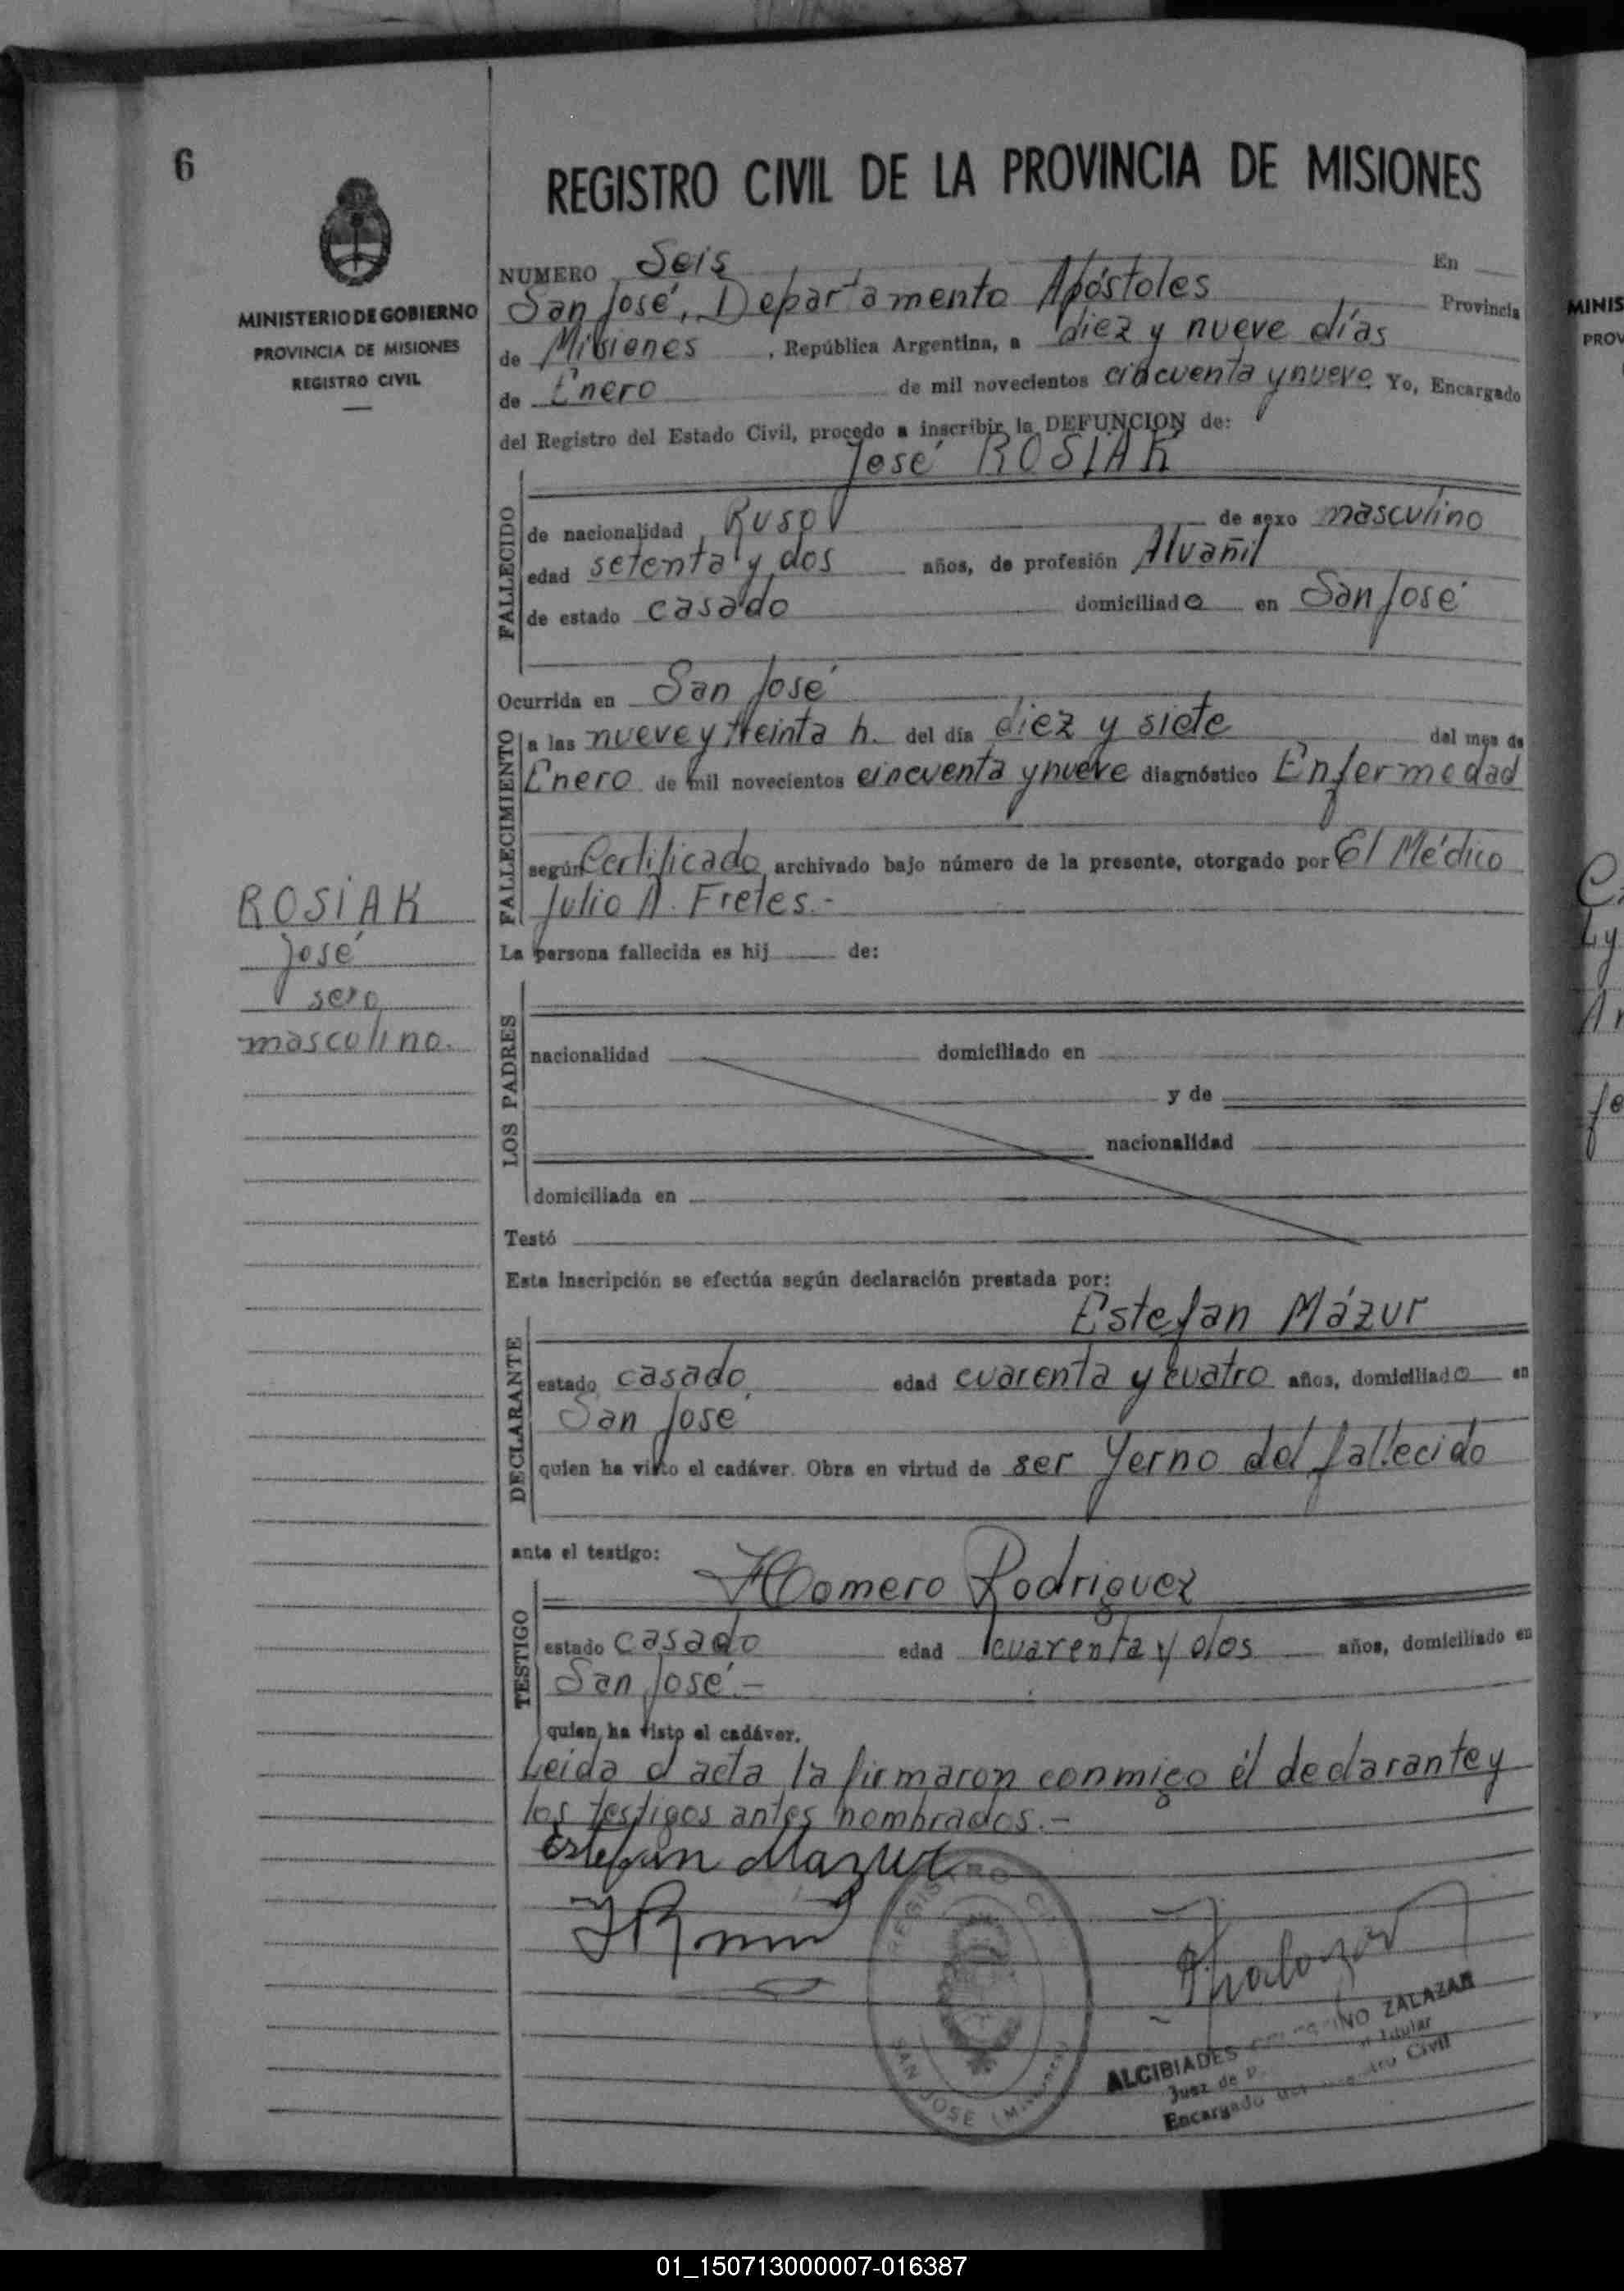 6
REGISTRO CIVIL DE LA PROVINCIA DE MISIONES
MINISTERIO DE GOBIERNO
PROVINCIA DE MISIONES
REGISTRO CIVIL
NUMERO Seis En
San José, Departamento Apóstoles Provincia
de Misiones, República Argentina, a diez y nueve días
de Enero de mil novecientos cincuenta y nueve Yo, Encargado
del Registro del Estado Civil, procedo a inscribir la DEFUNCION de:
José ROSIAK
FALLECIDO
de nacionalidad Ruso de sexo masculino
edad setenta y dos años, de profesión Alvañil
de estado casado domiciliado en San José
Ocurrida en San José
FALLECIMIENTO
a las nueve y treinta h. del día diez y siete del mes de
Enero de mil novecientos cincuenta y nueve diagnóstico Enfermedad
según Certificado archivado bajo número de la presente, otorgado por El Médico
Julio A. Fretes.-
ROSIAK
José
sexo
masculino.
La persona fallecida es hij de:
LOS PADRES
nacionalidad domiciliado en
y de
nacionalidad
domiciliada en
Testó
Esta inscripción se efectúa según declaración prestada por:
Estefan Mázur
DECLARANTE
estado casado edad cuarenta y cuatro años, domiciliado en
San José
quien ha visto el cadáver. Obra en virtud de ser Yerno del fallecido
ante el testigo:
Homero Rodriguez
TESTIGO
estado casado edad cuarenta y dos años, domiciliado en
San José.-
quien ha visto el cadáver.
Leida el acta la firmaron conmigo él declarante y
los testigos antes nombrados.-
Estefan Mazur
REGISTRO CIVIL
SAN JOSE (Misiones)
ALCIBIADES ZALAZAR
Juez de Titular
Encargado del Registro Civil
MINIS
PROV
01_150713000007-016387